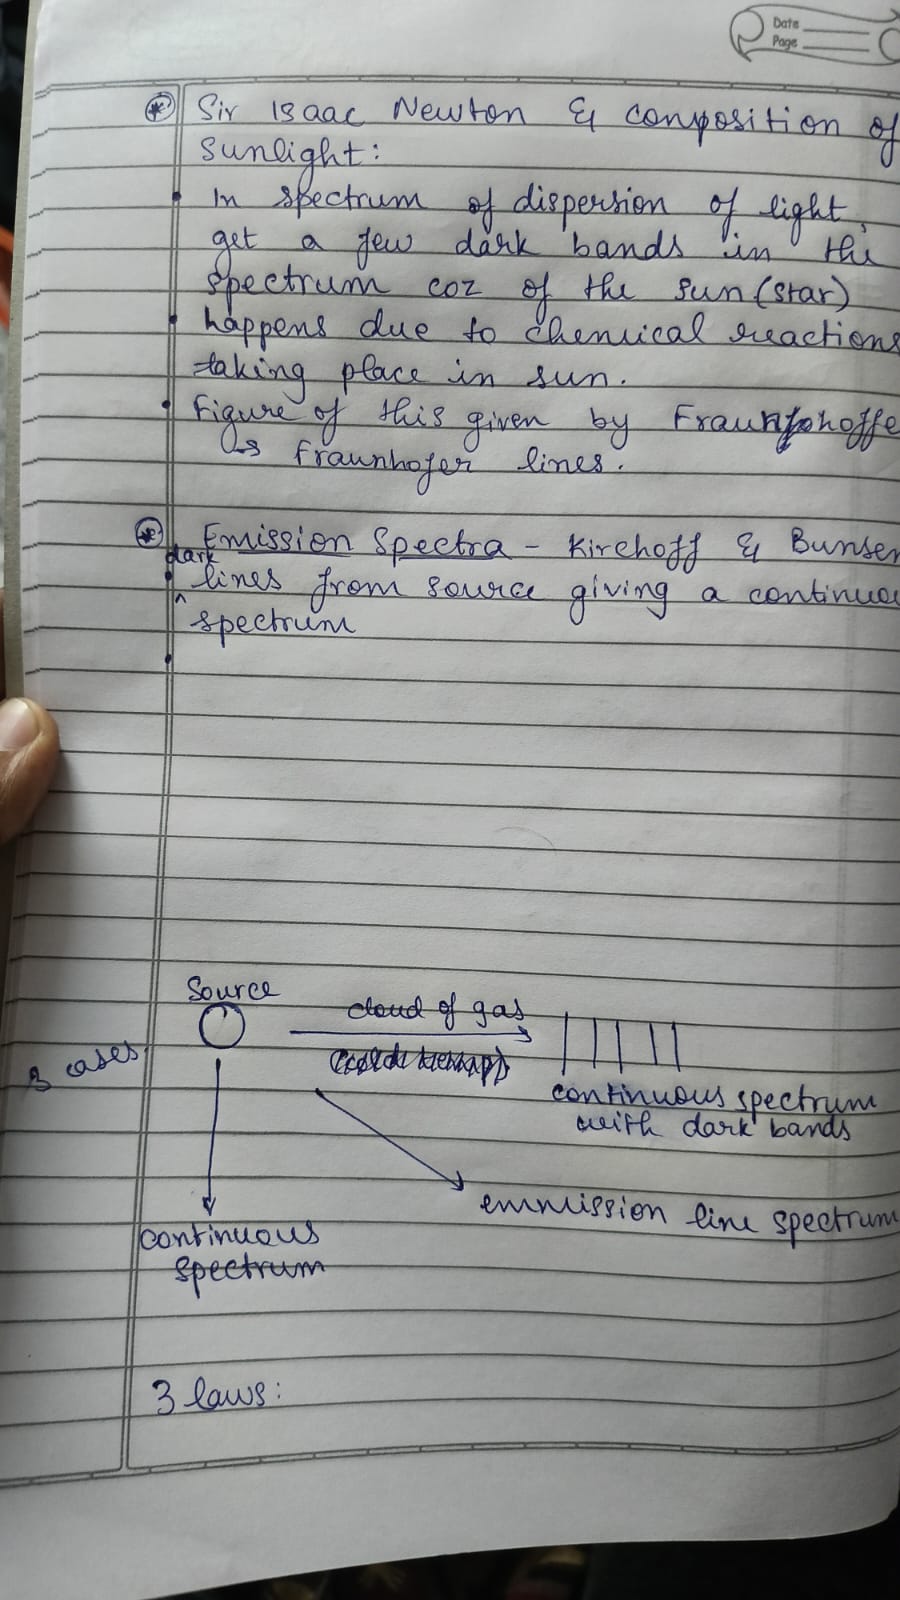 Date
Page
Sir Isaac Newton & composition of
Sunlight:
In spectrum of dispersion of light,
get a few dark bands in the
spectrum coz of the sun (star)
happens due to chemical reactions
taking place in sun.
Figure of this given by
↳ Fraunhofer lines.
Emission Spectra - Kirchoff & Bunsen
dark
lines from source giving a continuo
spectrum
Source
cloud of gas
3 cases
continuous spectrum
with dark bands
emmission line spectrum
continuous
spectrum
3 laws: